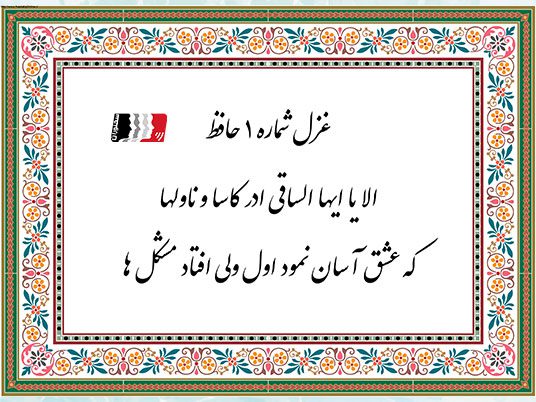 غزل شماره ۱ حافظ
الا یا ایها الساقی ادر کاسا و ناولها
که عشق آسان نمود اول ولی افتاد مشکل ها